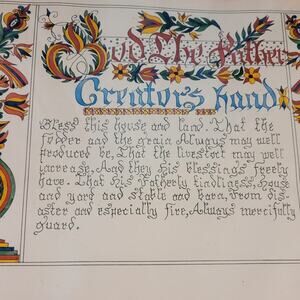 God The Father
Creator's hand:
Bless this house and land. That the
fodder and the grain Always may well
produced be, That the livestock may well
increase, And they his blessings freely
have. That his Fatherly kindliness, House
and yard and stable and barn, From dis-
aster and especially fire, Always mercifully
guard.